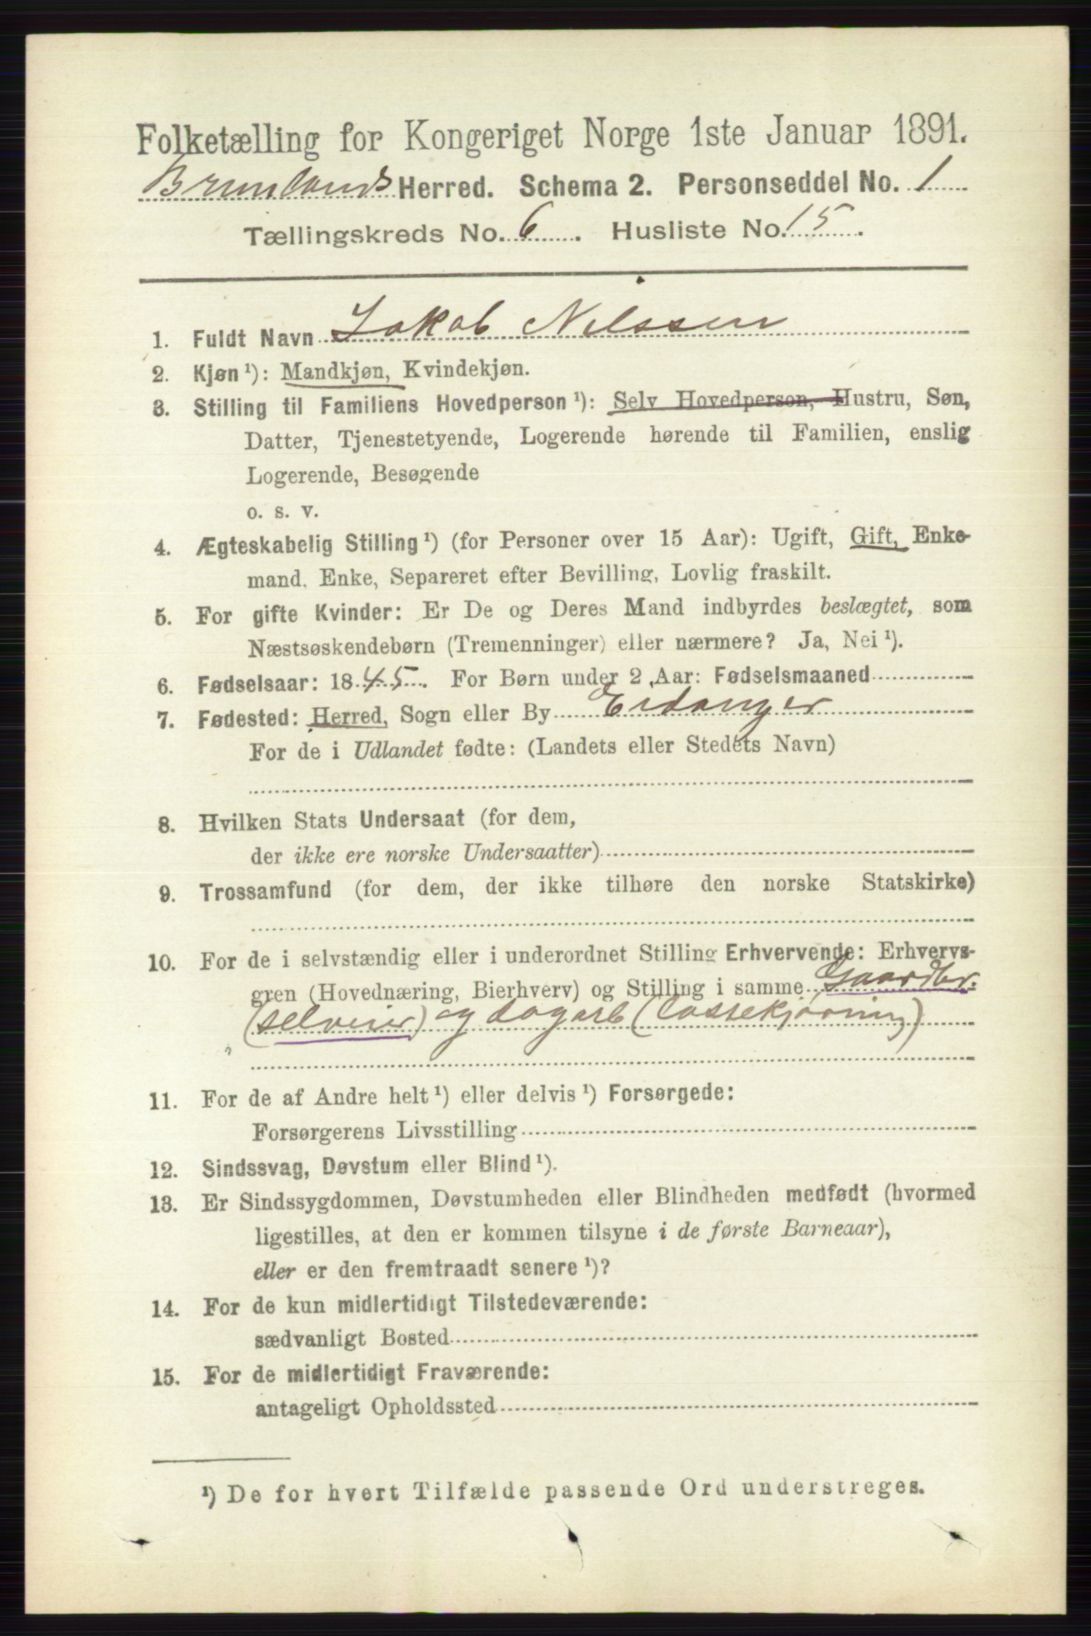 Folketælling for Kongeriget Norge 1ste Januar 1891.
Brunlands Herred. Schema 2. Personseddel No. 1
Tællingskreds No. 6. Husliste No. 15.
1. Fuldt Navn Jakob Nilssen
2. Kjøn ¹): Mandkjøn, Kvindekjøn.
3. Stilling til Familiens Hovedperson ¹): Selv Hovedperson, Hustru, Søn,
Datter, Tjenestetyende, Logerende hørende til Familien, enslig
Logerende, Besøgende
o. s. v.
4. Ægteskabelig Stilling ¹) (for Personer over 15 Aar): Ugift, Gift, Enke-
mand. Enke, Separeret efter Bevilling, Lovlig fraskilt.
5. For gifte Kvinder: Er De og Deres Mand indbyrdes beslægtet, som
Næstsøskendebørn (Tremenninger) eller nærmere? Ja, Nei ¹).
6. Fødselsaar: 1845. For Børn under 2 Aar: Fødselsmaaned
7. Fødested: Herred, Sogn eller By Eidanger
For de i Udlandet fødte: (Landets eller Stedets Navn)
8. Hvilken Stats Undersaat (for dem,
der ikke ere norske Undersaatter)
9. Trossamfund (for dem, der ikke tilhøre den norske Statskirke)
10. For de i selvstændig eller i underordnet Stilling Erhvervende: Erhvervs-
gren (Hovednæring, Bierhverv) og Stilling i samme Gaardbr.
(selveier) og dagarb (lassekjørning)
11. For de af Andre helt ¹) eller delvis ¹) Forsørgede:
Forsørgerens Livsstilling
12. Sindssvag, Døvstum eller Blind ¹).
13. Er Sindssygdommen, Døvstumheden eller Blindheden medfødt (hvormed
ligestilles, at den er kommen tilsyne i de første Barneaar),
eller er den fremtraadt senere ¹)?
14. For de kun midlertidigt Tilstedeværende:
sædvanligt Bosted
15. For de midlertidigt Fraværende:
antageligt Opholdssted
¹) De for hvert Tilfælde passende Ord understreges.